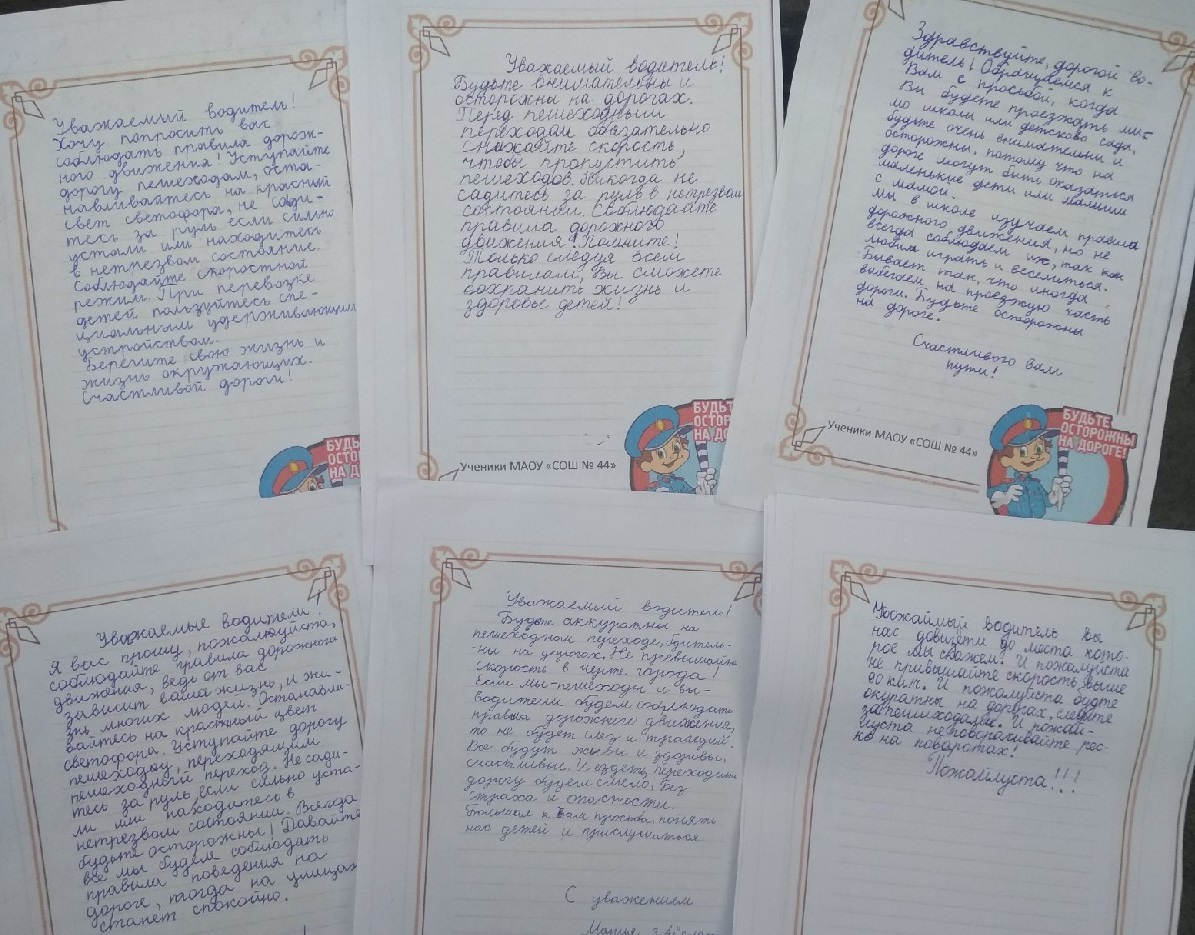 Уважаемый водитель!
Хочу попросить вас
соблюдать правила дорож-
ного движения! Уступайте
дорогу пешеходам, оста-
навливайтесь на красный
свет светофора, не сади-
тесь за руль если сильно
устали или находитесь
в нетрезвом состояние.
Соблюдайте скоростной
режим. При перевозке
детей пользуйтесь спе-
циальным удерживающим
устройством.
Берегите свою жизнь и
жизнь окружающих.
Счастливой дороги!
БУДЬ
ОСТО
НА Д
Уважаемый водитель!
Будьте внимательны и
осторожны на дорогах.
Перед пешеходными
переходам обязательно
снижайте скорость,
чтобы пропустить
пешеходов. Никогда не
садитесь за руль в нетрезвом
состоянии. Соблюдайте
правила дорожного
движения! Помните!
Только следуя всем
правилам, Вы сможете
сохранить жизнь и
здоровье детей!
Ученики МАОУ «СОШ № 44»
БУДЬТ
ОСТОР
НА ДО
Здравствуйте, дорогой во-
дитель! Обращаемся к
Вам с просьбой, когда
Вы будете проезжать ми-
мо школы или детского сада,
будьте очень внимательны и
осторожны. потому что на
дороге могут быть оказаться
маленькие дети или мамы
с малой
мы в школе изучаем правила
дорожного движения, но не
всегда соблюдаем их, так как
любим играть и веселиться.
Бывает так, что иногда
выбегаем на проезжую часть
дороги. Будьте осторожны
на дороге.
Счастливого Вам
пути!
Ученики МАОУ «СОШ № 44»
БУДЬТЕ
ОСТОРОЖНЫ
НА ДОРОГЕ!
Уважаемые водители!
Я вас прошу, пожалуйста,
соблюдайте правила дорожного
движения, ведь от вас
зависит ваша жизнь, и жи-
знь многих людей. Останавли-
вайтесь на красный цвет
светофора. Уступайте дорогу
пешеходу, переходящим
пешеходный переход. Не сади-
тесь за руль, если сильно уста-
ли или находитесь в
нетрезвом состоянии. Всегда
будьте осторожны! Давайте
все мы будем соблюдать
правила поведения на
дороге, тогда на улицах
станет спокойно.
Уважаемый водитель!
Будьте аккуратны на
пешеходном переходе, бдитель-
ны на дорогах. Не превышайте
скорость в черте города!
Если мы-пешеходы и вы-
водители будем соблюдать
правила дорожного движения,
то не будет слёз и трагедий.
Все будут живы и здоровы,
счастливы. И ходить, переходить
дорогу будем смело, без
страха и опасности.
к Вам просьба, понять
нас детей и прислушаться
С уважением
Уважаймый водитель вы
нас довизети до места кото-
рое мы скажем. И пожалуиста
не прибышайте скорость выше
60 км.ч. И пожалуйста будте
окуратны на дорогах, следите
за пешиходами. И пожай-
луста не поворачивайте рес-
ко на поворотах!
Пожалуиста!!!